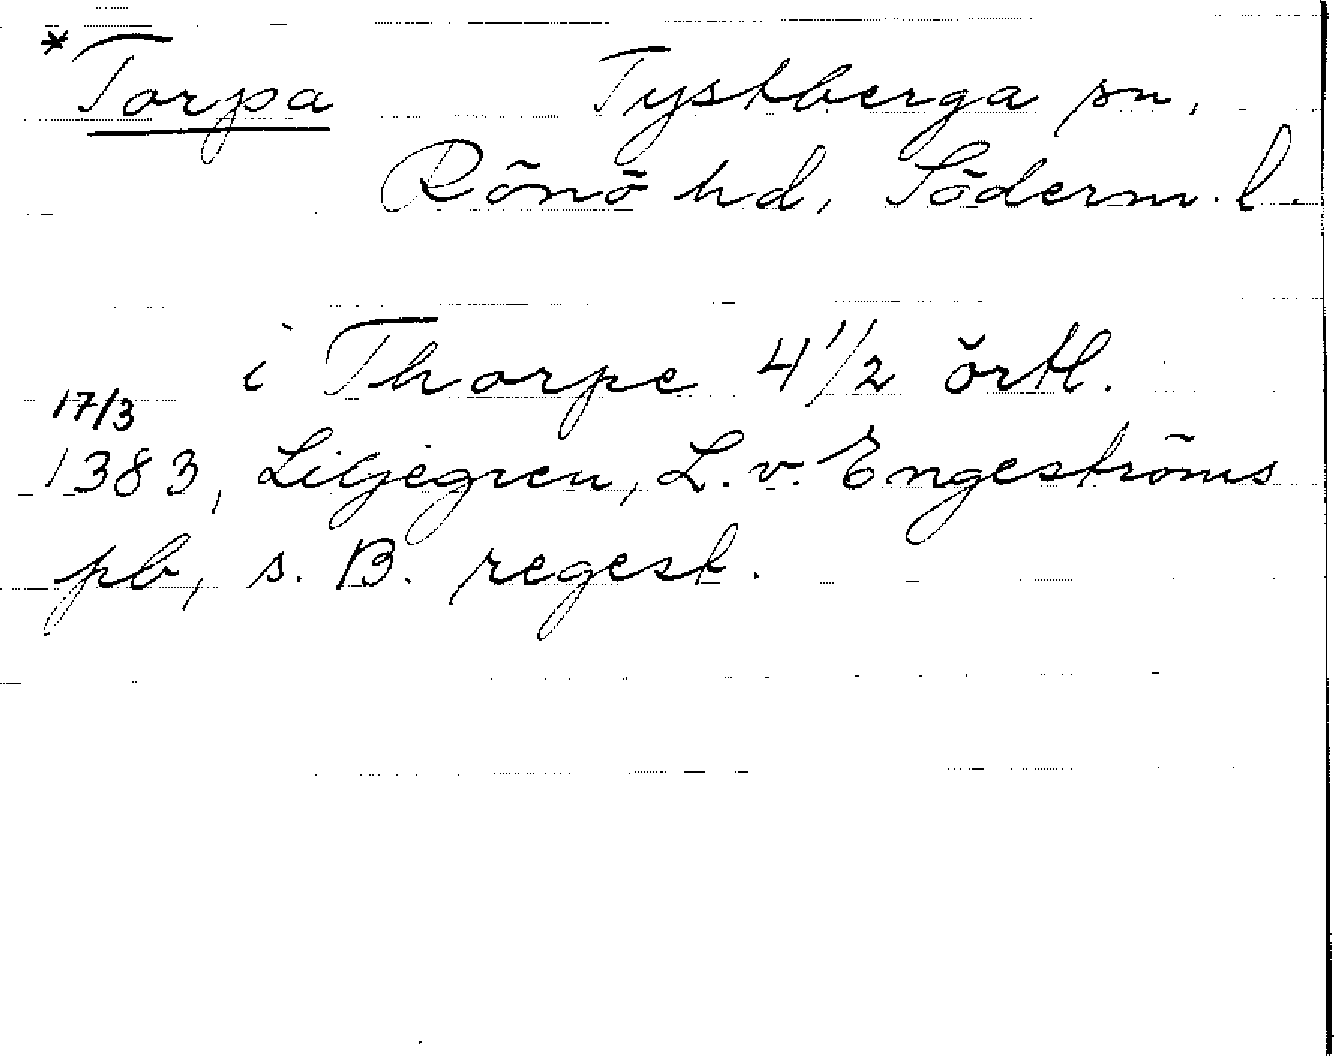 *Torpa Tystberga sn,
Rönö hd, Söderm. l.
i Thorpe 4 1/2 örtl.
17/3
1383, Liljegren, L. v. Engeströms
pb, s. B. regest.